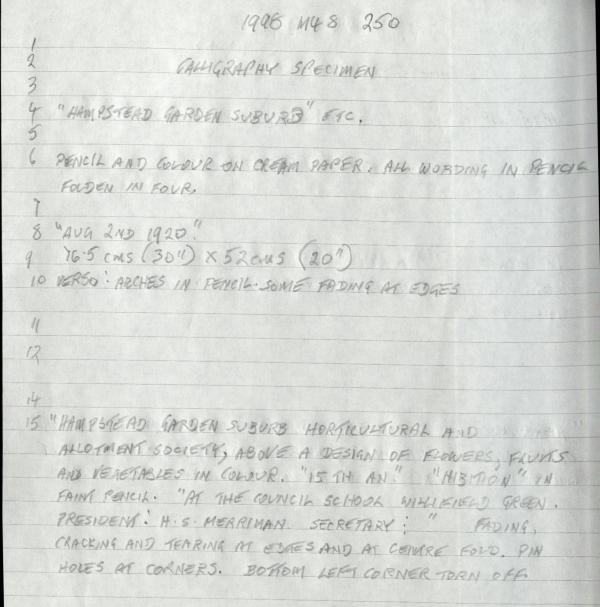 1998 M48 250
1
2 CALLIGRAPHY SPECIMEN
3
4 "HAMPSTEAD GARDEN SUBURB" ETC.
5
6 PENCIL AND COLOUR ON CREAM PAPER. ALL WORDING IN PENCIL
FOLDEN IN FOUR.
7
8 "AUG 2ND 1920."
9 76.5 cms (30") X 52 cms (20")
10 VERSO: ARCHES IN PENCIL. SOME FADING AT EDGES
11
12
14
15 "HAMPSTEAD GARDEN SUBURB HORTICULTURAL AND
ALLOTMENT SOCIETY, ABOVE A DESIGN OF FLOWERS, FRUITS
AND VEGETABLES IN COLOUR. "15TH AN" "HIBITION" IN
FAINT PENCIL. "AT THE COUNCIL SCHOOL WILLIFIELD GREEN.
PRESIDENT: H.S. MERRIMAN SECRETARY: " FADING,
CRACKING AND TEARING AT EDGES AND AT CENTRE FOLD. PIN
HOLES AT CORNERS. BOTTOM LEFT CORNER TORN OFF.